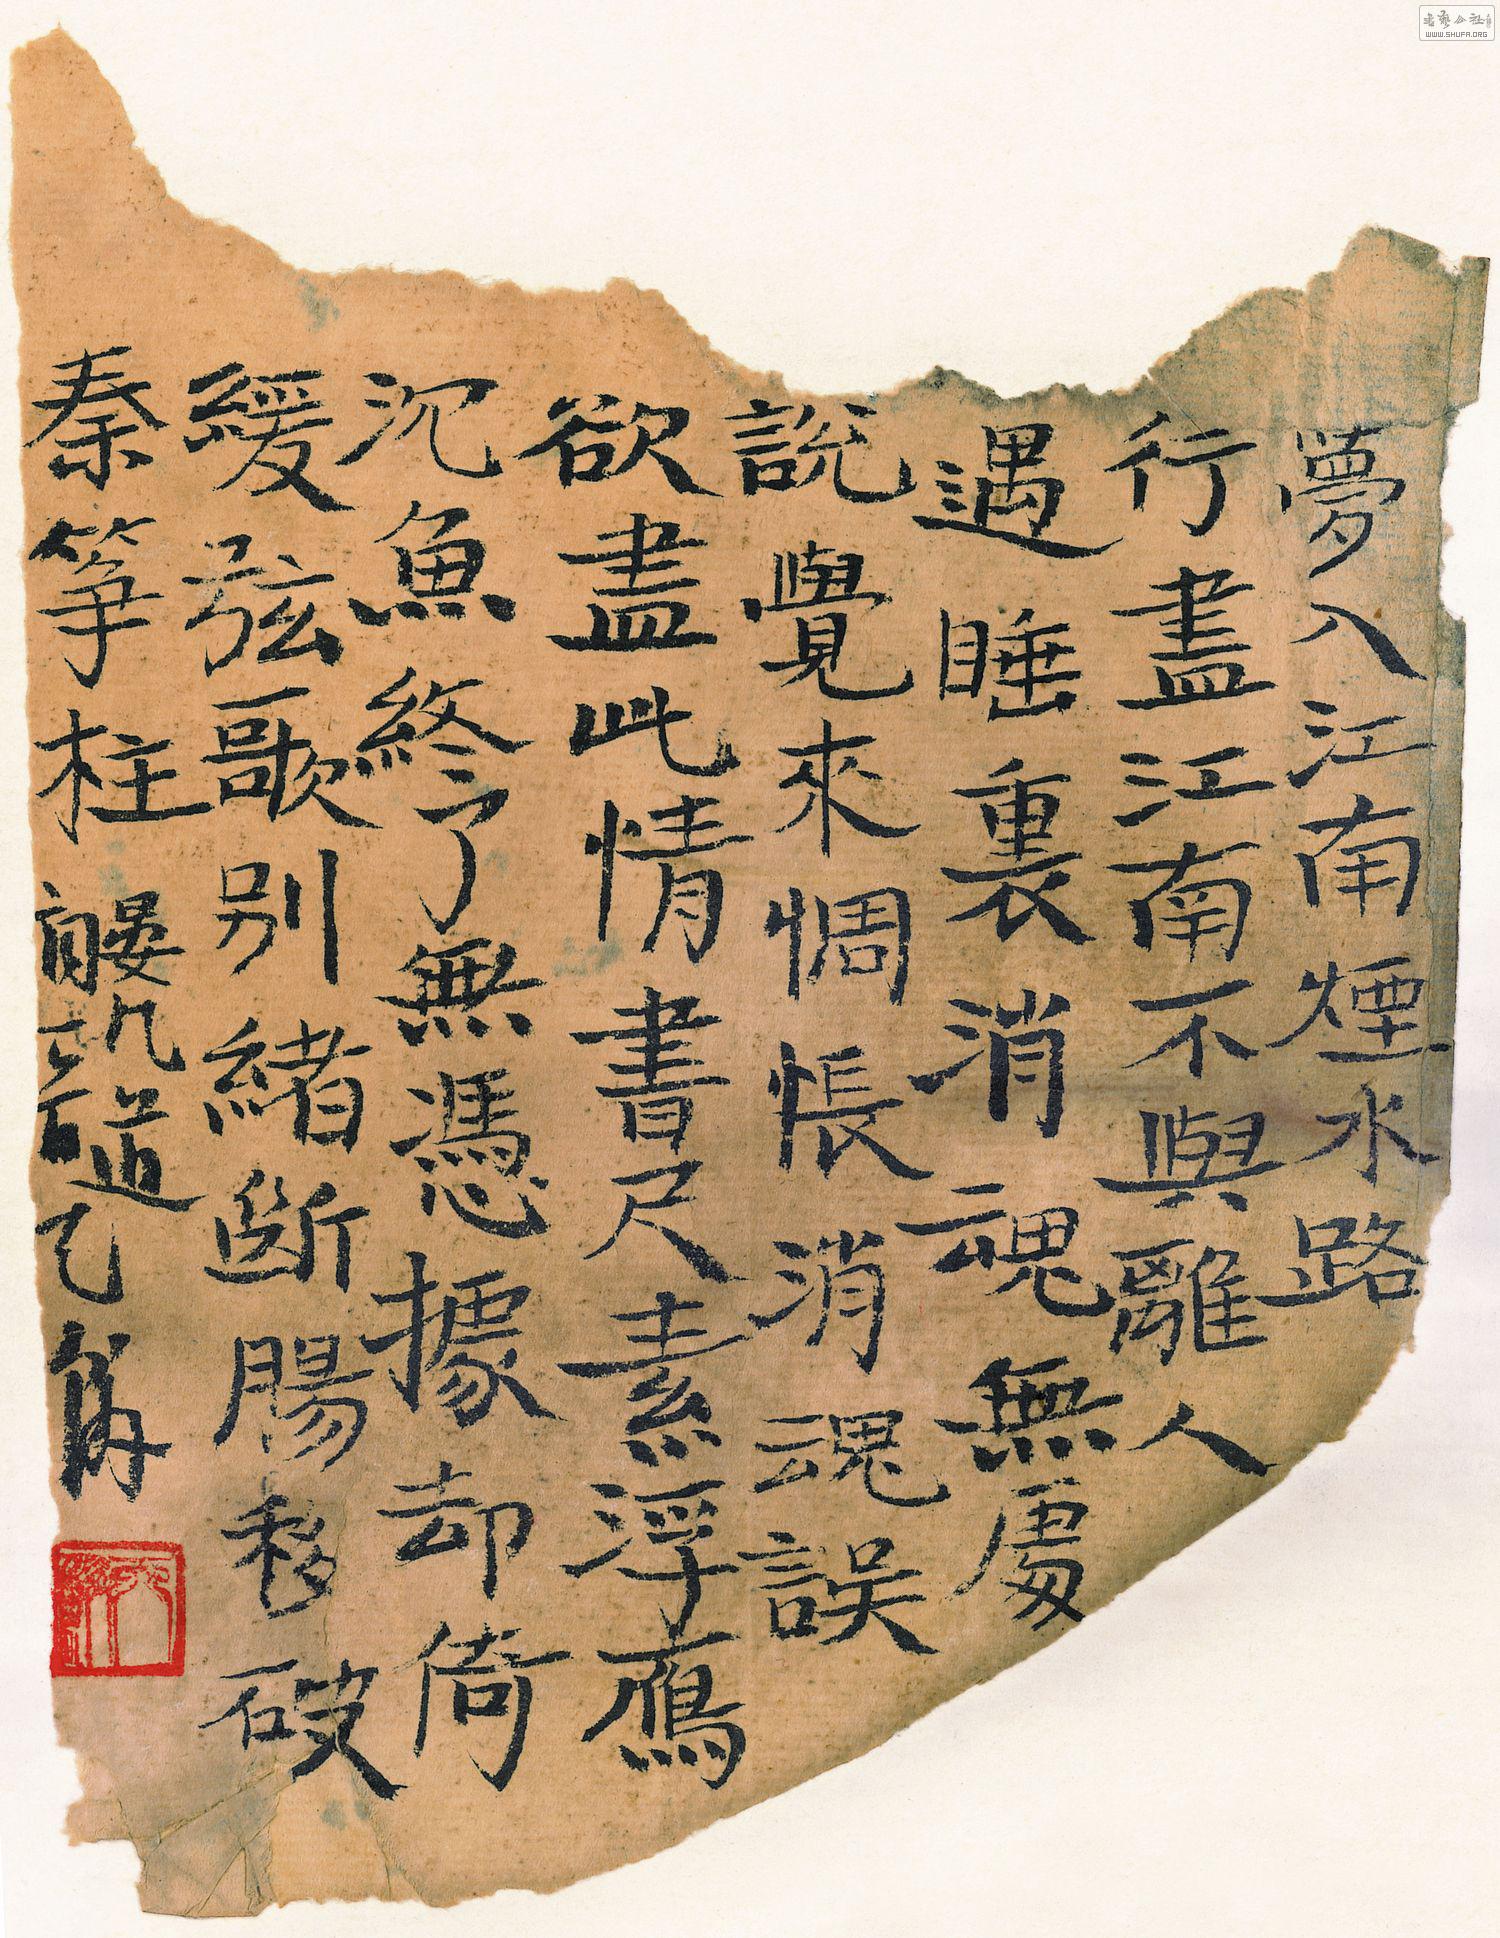 夢入江南煙水路
行盡江南不與離人
遇睡裏消魂無處
說覺來惆悵消魂誤
欲盡此情書尺素浮鴈
沉魚終了無憑據却倚
緩弦歌别緒斷腸移破
秦箏柱 晏几道
書藝公社
WWW.SHUFA.ORG